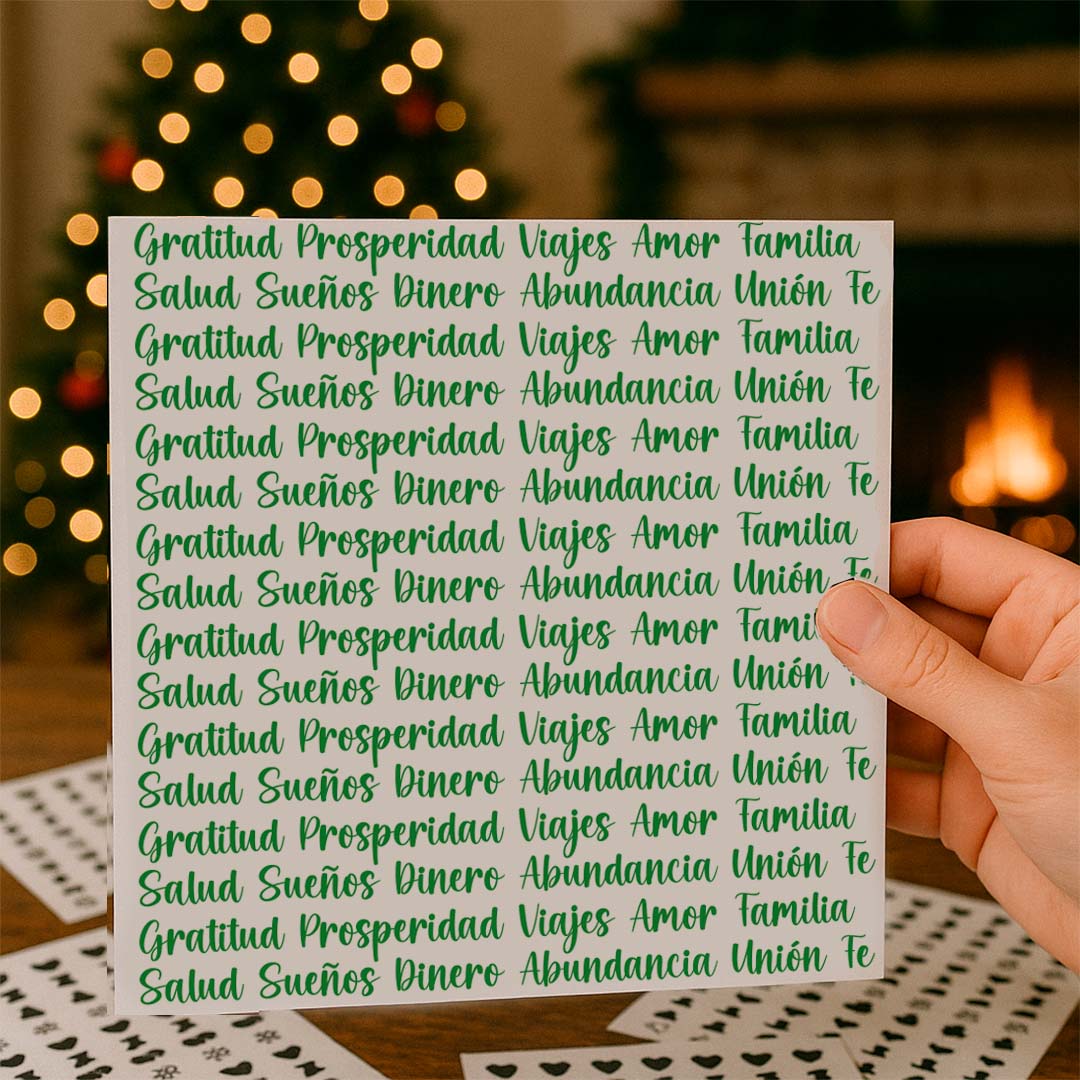 Gratitud Prosperidad Viajes Amor Familia
Salud Sueños Dinero Abundancia Unión Fe
Gratitud Prosperidad Viajes Amor Familia
Salud Sueños Dinero Abundancia Unión Fe
Gratitud Prosperidad Viajes Amor Familia
Salud Sueños Dinero Abundancia Unión Fe
Gratitud Prosperidad Viajes Amor Familia
Salud Sueños Dinero Abundancia Unión Fe
Gratitud Prosperidad Viajes Amor Fami
Salud Sueños Dinero Abundancia Unión
Gratitud Prosperidad Viajes Amor Familia
Salud Sueños Dinero Abundancia Unión Fe
Gratitud Prosperidad Viajes Amor Familia
Salud Sueños Dinero Abundancia Unión Fe
Gratitud Prosperidad Viajes Amor Familia
Salud Sueños Dinero Abundancia Unión Fe